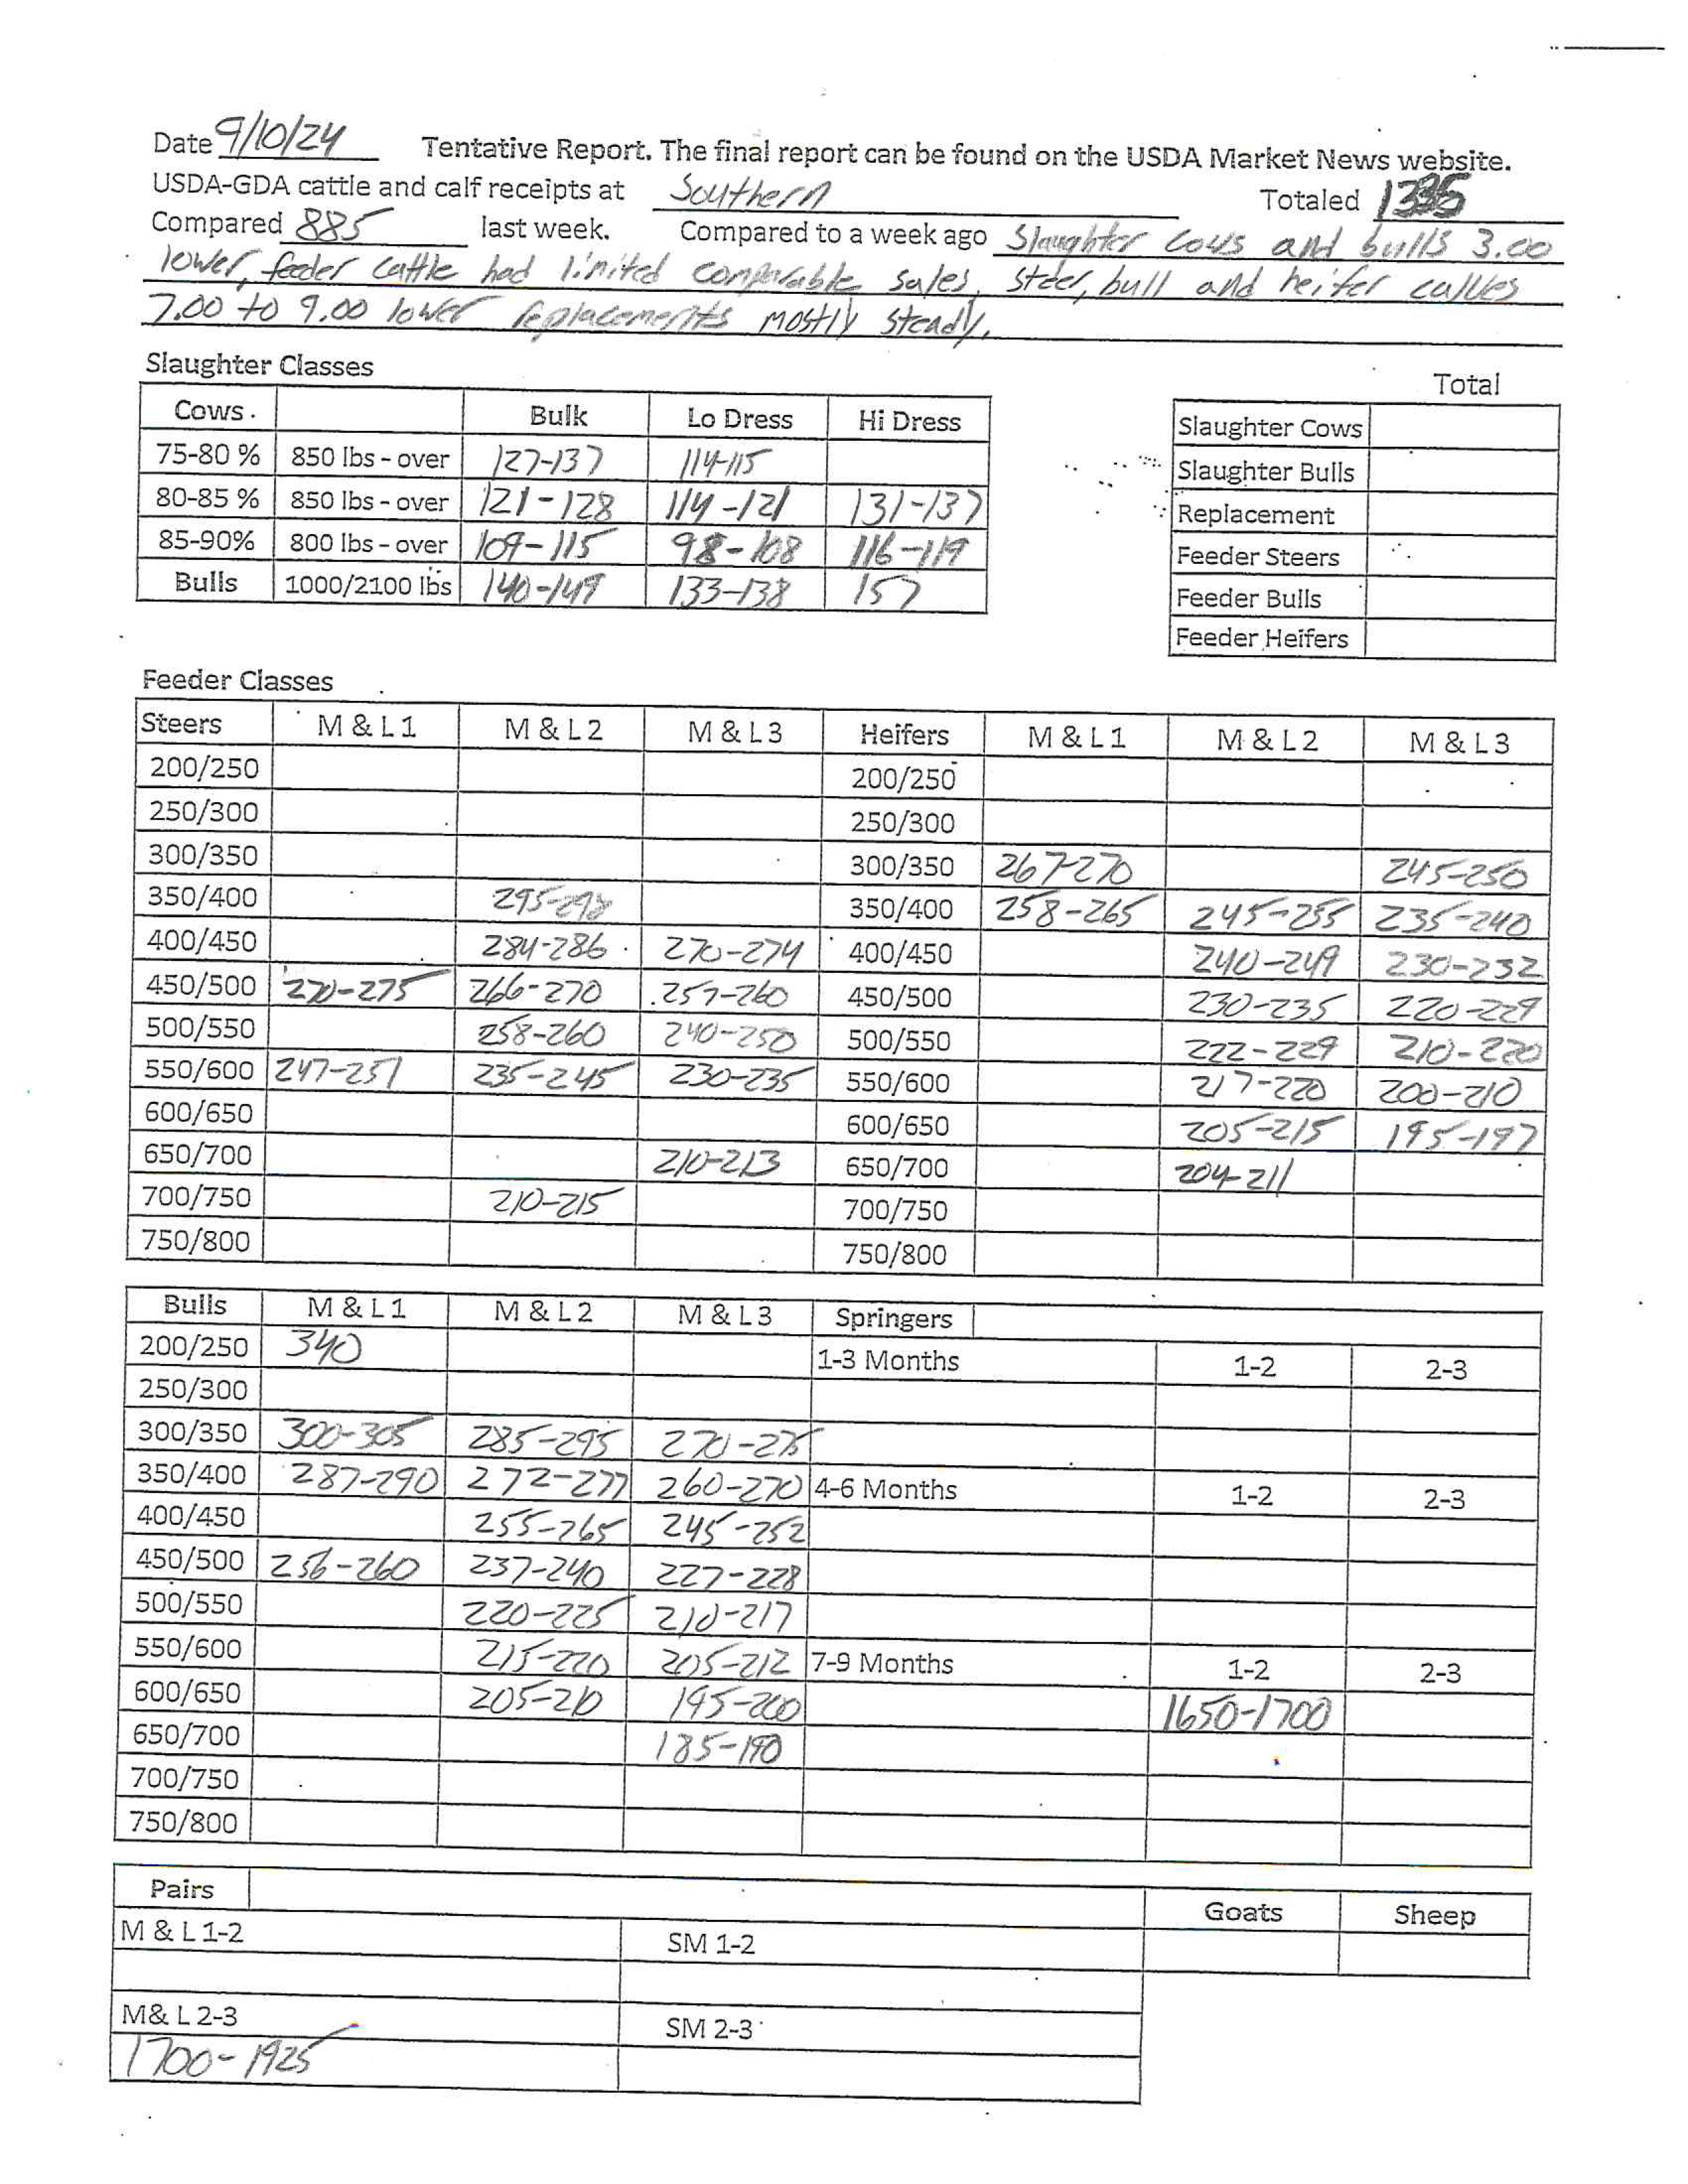 Date 9/10/24 Tentative Report. The final report can be found on the USDA Market News website.
USDA-GDA cattle and calf receipts at Southern Totaled
Compared 885 last week. Compared to a week ago Slaughter cows and bulls 3.00
lower, feeder cattle had limited comparable sales, steer, bull and heifer calves
7.00 to 9.00 lower replacements mostly steady.
Slaughter Classes
Cows. Bulk Lo Dress Hi Dress
75-80 % 850 lbs - over 127-137 114-115
80-85 % 850 lbs - over 121-128 114-121 131-137
85-90% 800 lbs - over 109-115 98-108 116-119
Bulls 1000/2100 lbs 140-149 133-138 157
Total
Slaughter Cows
Slaughter Bulls
Replacement
Feeder Steers
Feeder Bulls
Feeder Heifers
Feeder Classes
Steers M & L 1 M & L 2 M & L 3 Heifers M & L 1 M & L 2 M & L 3
200/250 200/250
250/300 250/300
300/350 300/350 267-270 245-250
350/400 295-298 350/400 258-265 245-255 235-240
400/450 284-286 270-274 400/450 240-249 230-232
450/500 270-275 266-270 257-260 450/500 230-235 220-229
500/550 258-260 240-250 500/550 222-229 210-220
550/600 247-251 235-245 230-235 550/600 217-220 200-210
600/650 600/650 205-215 195-197
650/700 210-213 650/700 204-211
700/750 210-215 700/750
750/800 750/800
Bulls M & L 1 M & L 2 M & L 3 Springers
200/250 340 1-3 Months 1-2 2-3
250/300
300/350 300-305 285-295 270-275
350/400 287-290 272-277 260-270 4-6 Months 1-2 2-3
400/450 255-265 245-252
450/500 256-260 237-240 227-228
500/550 220-225 210-217
550/600 215-220 205-212 7-9 Months 1-2 2-3
600/650 205-210 195-200 1650-1700
650/700 185-190
700/750
750/800
Pairs Goats Sheep
M & L 1-2 SM 1-2
M& L 2-3 SM 2-3
1700-1925